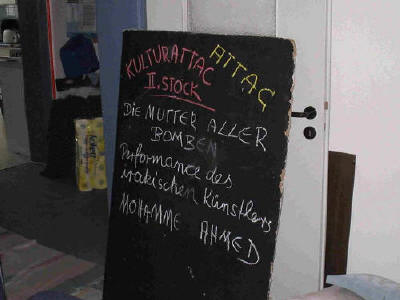 KULTURATTAC
ATTAC
II. STOCK
DIE MUTTER ALLER
BOMBEN
Performance des
irakischen Künstlers
MOHAMME AHMED